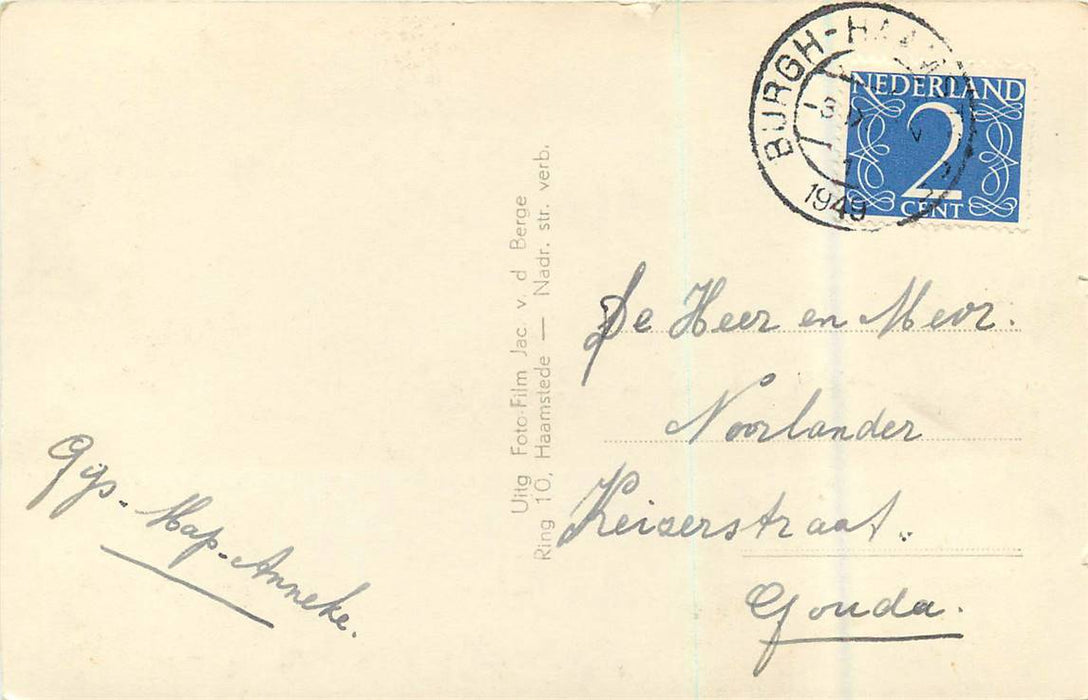 BURGH-HAA
1949
NEDERLAND
2
CENT
Uitg Foto-Film Jac. v. d Berge
Ring 10, Haamstede — Nadr. str. verb.
De Heer en Mevr.
Noorlander
Keizerstraat.
Gouda.
Gijs. Anneke.